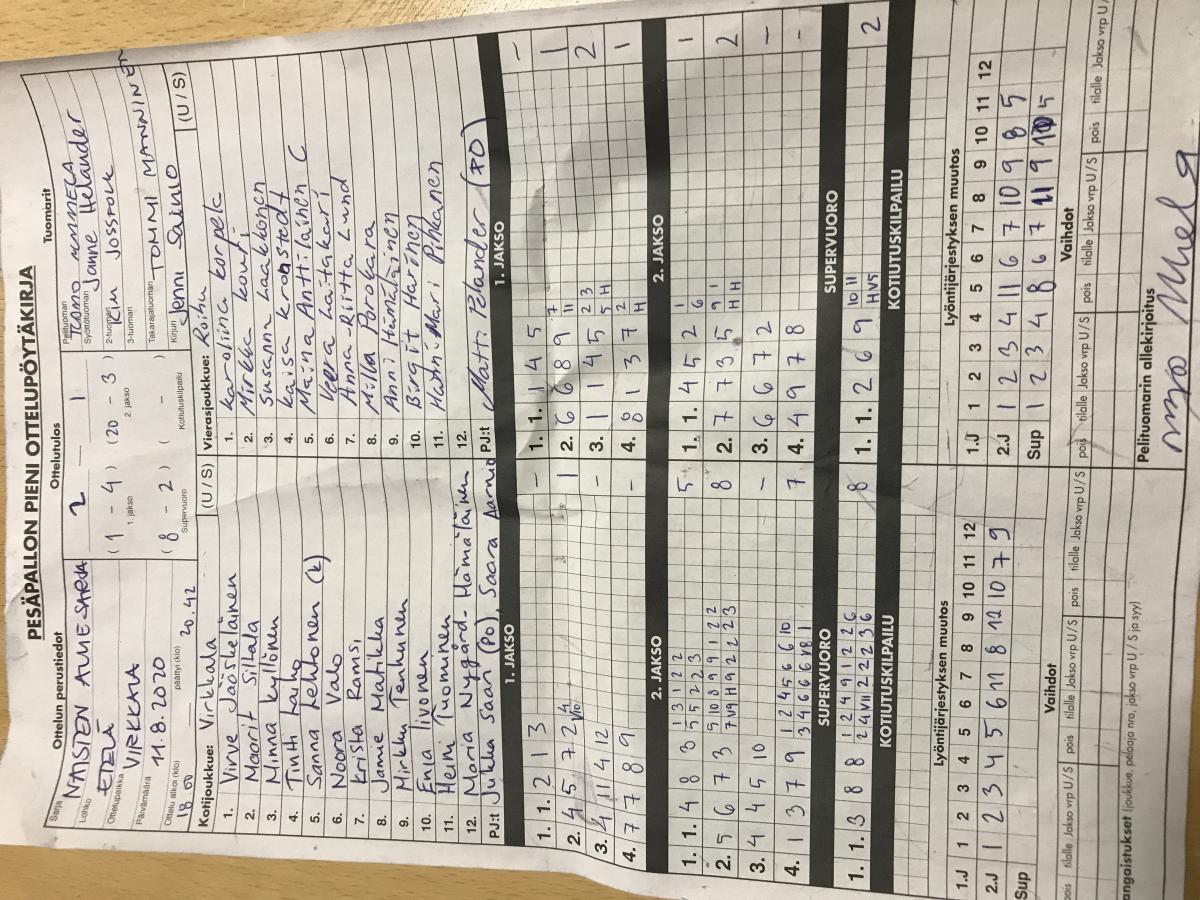 PESÄPALLON PIENI OTTELUPÖYTÄKIRJA
Ottelun perustiedot
Ottelutulos
Tuomarit
Sarja NAISTEN ALUESARJA
Lohko ETELÄ
Ottelupaikka VIRKKALA
Päivämäärä 11.8.2020
Ottelu alkoi (klo) 18 00 päättyi (klo) 20.42
2 - 1
(1 - 4) (20 - 3)
1. jakso 2. jakso
(8 - 2) ( - )
Supervuoro Kotiutuskilpailu
Pelituomari
Syöttötuomari Janne Helander
2-tuomari
3-tuomari
Takarajatuomari TOMMI MANNINEN
Kirjuri Jonni Sainio
Kotijoukkue: Virkkala (U / S)
1. Virve Jääskeläinen
2. Maarit Sillala
3. Minna Kyllönen
4. Tintti Laiho
5. Sanna Lehtonen (k)
6. Noora Valo
7. Krista Ramsi
8. Jannie Matikka
9. Mirkku Tenhunen
10. Enja Iivonen
11. Heini Tuominen
12. Maria Nygård-Hämäläinen
PJ:t Jukka Saari (PO), Saara Aarnio
Vierasjoukkue: Roihu (U / S)
1. Karoliina Korpela
2. Mirkka Kouri
3. Susanna Laakkonen
4. Kaisa Kronstedt
5. Maina Anttilainen C
6. Veera Laitakari
7. Anna-Riitta Lund
8. Milla Porokara
9. Anni Hämäläinen
10. Birgit Harinen
11. Hanni-Mari Pihkanen
12.
PJ:t Matti Pelander (PO)
1. JAKSO 1. JAKSO
1. 1. 2 1 3 -
2. 4 5 7 2 1
3. 4 11 4 12 -
4. 7 7 8 9 -
1. 1. 1 4 5 -
2. 6 6 8 9 7 11 1
3. 1 1 4 5 2 3 5 H 2
4. 8 1 3 7 2 H 1
2. JAKSO 2. JAKSO
1. 1. 4 8 3 1 3 1 2 2 5 5 2 2 3 5
2. 5 6 7 3 5 10 8 9 9 1 2 2 8
3. 4 4 5 10 -
4. 1 3 7 9 1 2 4 5 6 6 10 7
1. 1. 4 5 2 1 6 1
2. 7 7 3 5 9 1 H H 2
3. 6 6 7 2 -
4. 4 9 7 8 -
SUPERVUORO SUPERVUORO
1. 1. 3 8 8 1 2 4 9 1 2 2 6 8
1. 1. 2 6 9 10 11 2
KOTIUTUSKILPAILU KOTIUTUSKILPAILU
Lyöntijärjestyksen muutos Lyöntijärjestyksen muutos
1.J 1 2 3 4 5 6 7 8 9 10 11 12
2.J 1 2 3 4 5 6 11 8 12 10 7 9
Sup
1.J 1 2 3 4 5 6 7 8 9 10 11 12
2.J 1 2 3 4 11 6 7 10 9 8 5
Sup 1 2 3 4 8 6 7 11 9 10 5
Vaihdot Vaihdot
pois tilalle Jakso vrp U / S pois tilalle Jakso vrp U / S pois tilalle Jakso vrp U / S
pois tilalle Jakso vrp U / S pois tilalle Jakso vrp U / S pois tilalle Jakso vrp U /
angaistukset (joukkue, pelaaja nro, jakso vrp U / S ja syy)
Pelituomarin allekirjoitus